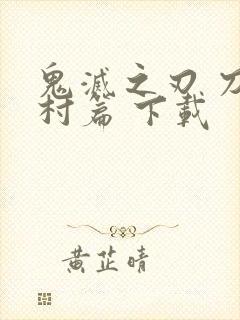 鬼滅之刃 刀
村篇 下載
黃芷晴